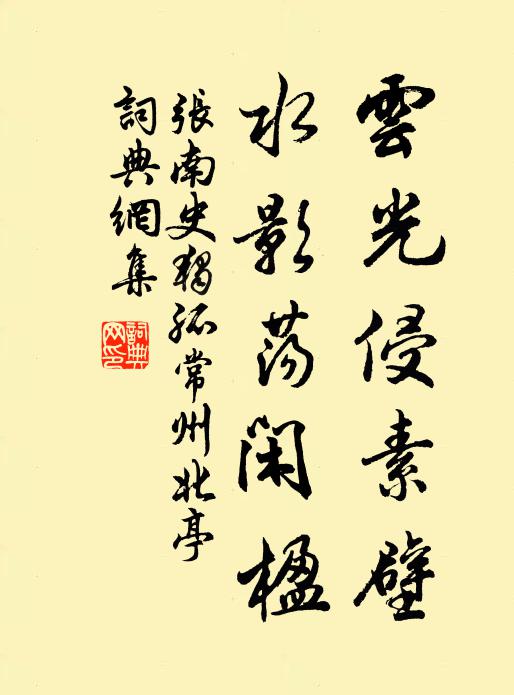 雲光侵素壁
水影蕩閑楹
張南史獨孤常州北亭
詞典網集
詞典網印